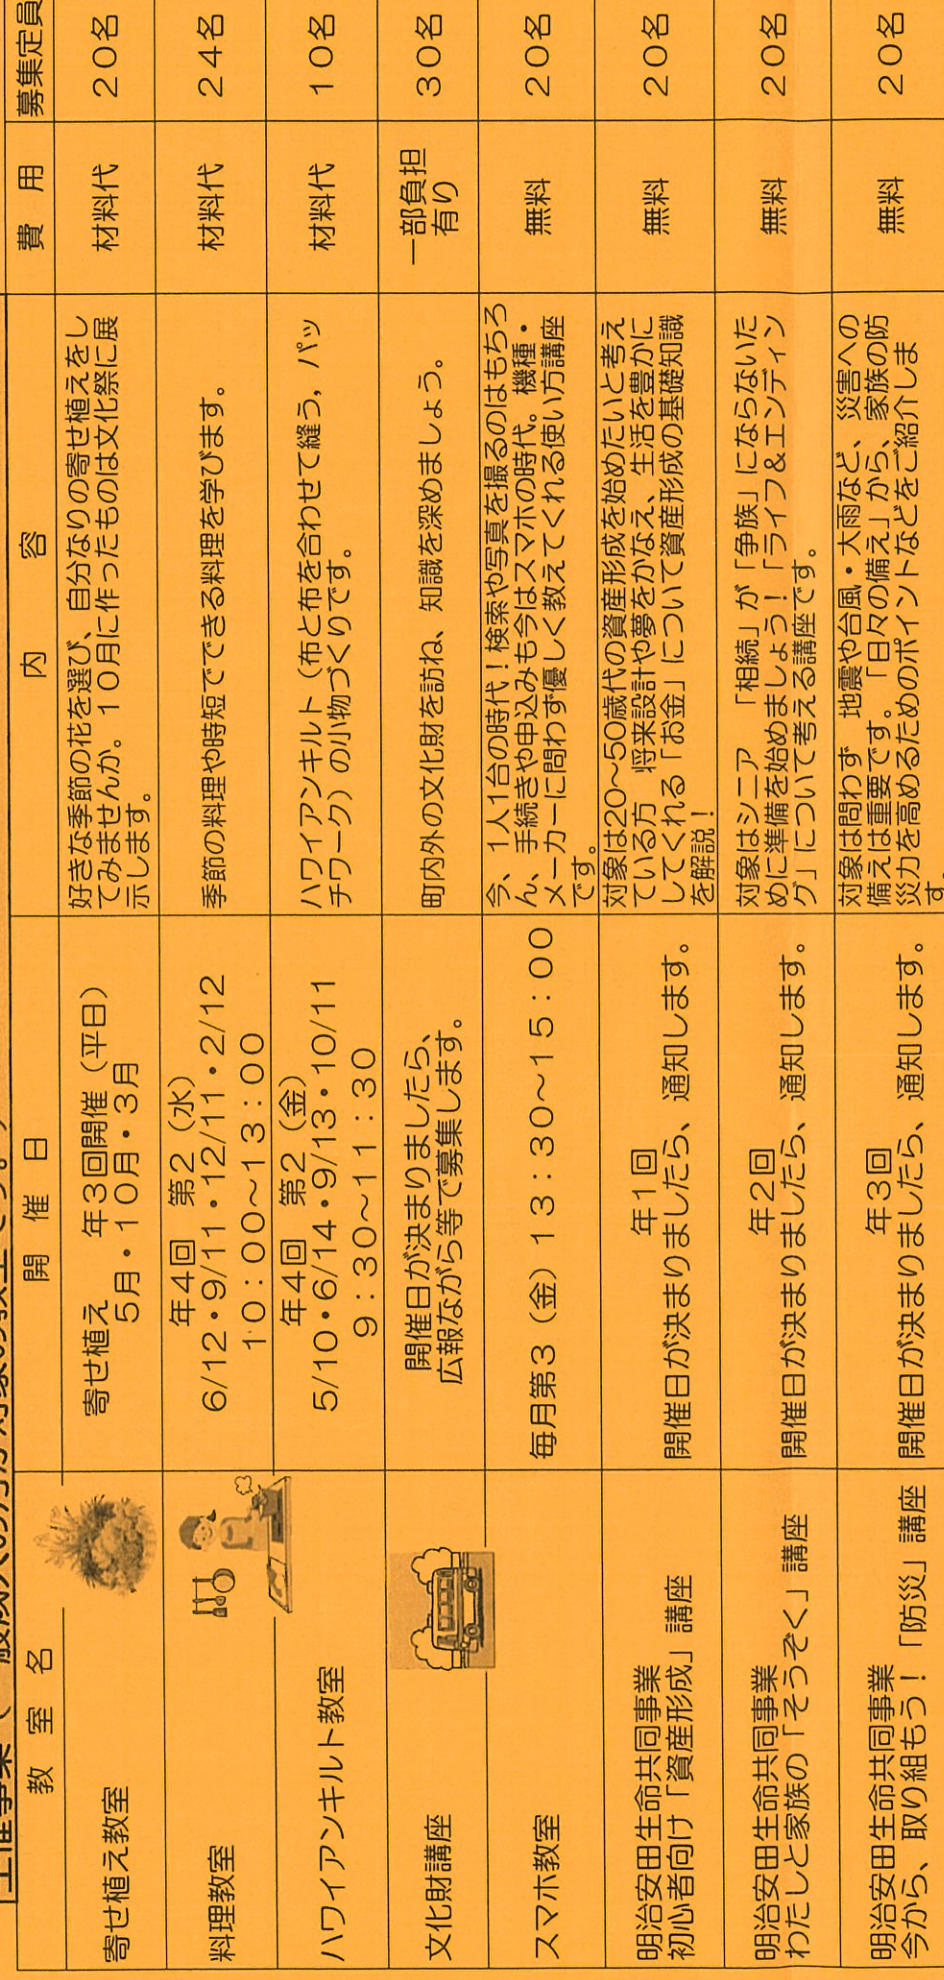 主催事業（一般成人の方が対象の教室です。）
教室名
開催日
内容
費用
募集定員
寄せ植え教室
寄せ植え　年３回開催（平日）
５月・１０月・３月
好きな季節の花を選び、自分なりの寄せ植えをし
てみませんか。１０月に作ったものは文化祭に展
示します。
材料代
２０名
料理教室
年４回　第２（水）
6/12・9/11・12/11・2/12
１０：００～１３：００
季節の料理や時短でできる料理を学びます。
材料代
２４名
ハワイアンキルト教室
年４回　第２（金）
5/10・6/14・9/13・10/11
９：３０～１１：３０
ハワイアンキルト（布と布を合わせて縫う，パッ
チワーク）の小物づくりです。
材料代
１０名
文化財講座
開催日が決まりましたら、
広報ながら等で募集します。
町内外の文化財を訪ね、知識を深めましょう。
一部負担
有り
３０名
スマホ教室
毎月第３（金）１３：３０～１５：００
今、１人１台の時代！検索や写真を撮るのはもちろ
ん、手続きや申込みも今はスマホの時代。機種・
メーカーに問わず優しく教えてくれる使い方講座
です。
無料
２０名
明治安田生命共同事業
初心者向け「資産形成」講座
年１回
開催日が決まりましたら、通知します。
対象は20～50歳代の資産形成を始めたいと考え
ている方　将来設計や夢をかなえ、生活を豊かに
してくれる「お金」について資産形成の基礎知識
を解説！
無料
２０名
明治安田生命共同事業
わたしと家族の「そうぞく」講座
年２回
開催日が決まりましたら、通知します。
対象はシニア　「相続」が「争族」にならないた
めに準備を始めましょう！「ライフ＆エンディン
グ」について考える講座です。
無料
２０名
明治安田生命共同事業
今から、取り組もう！「防災」講座
年３回
開催日が決まりましたら、通知します。
対象は問わず　地震や台風・大雨など、災害への
備えは重要です。「日々の備え」から、家族の防
災力を高めるためのポイントなどをご紹介しま
す。
無料
２０名